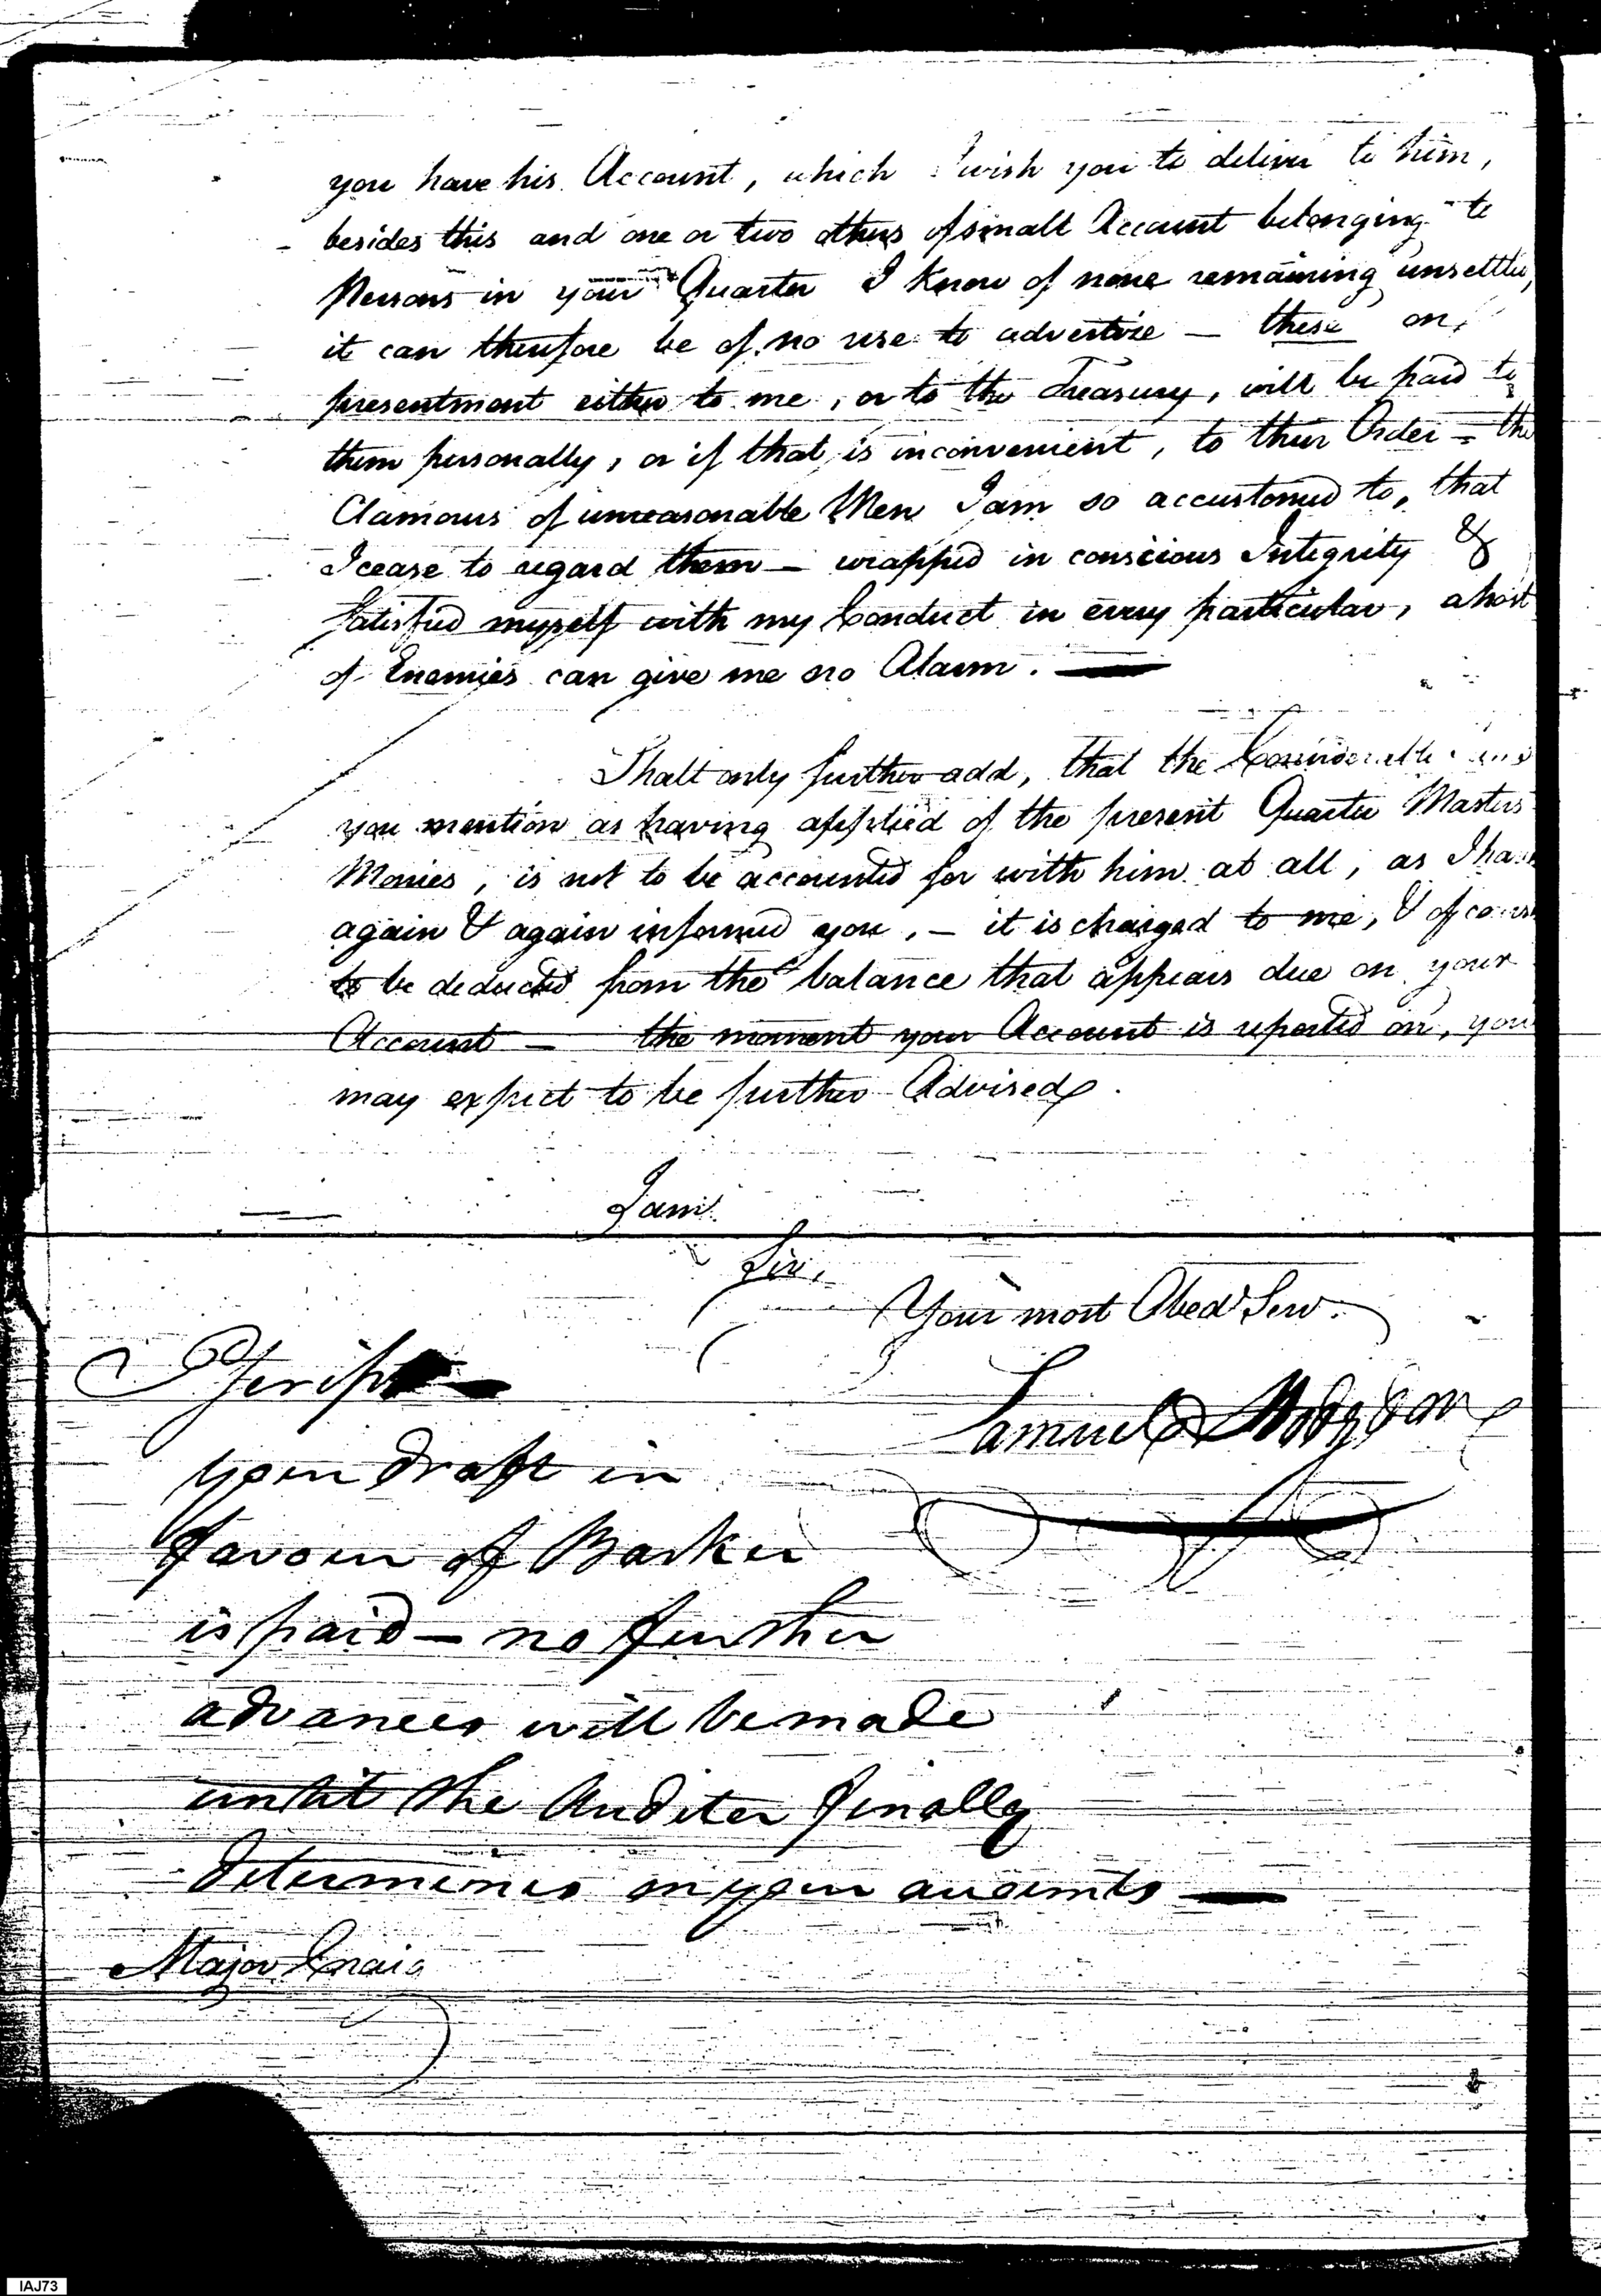 you have his Account, which I wish you to deliver to him,
besides this and one or two others of small Account belonging to
Persons in your Quarter I know of none remaining unsettled,
it can therefore be of no use to advertise — these on
presentment either to me, or to the Treasury, will be paid to
them personally, or if that is inconvenient, to their Order — the
Clamours of unreasonable Men I am so accustomed to, that
I cease to regard them — wrapped in conscious Integrity &
Satisfied myself with my Conduct in every particular, a host
of Enemies can give me no Alarm. —
I shall only further add, that the Considerable
you mention as having applied of the present Quarter Masters
Monies, is not to be accounted for with him at all, as I have
again & again informed you, — it is charged to me, & of course
to be deducted from the balance that appears due on your
Account — the moment your Account is reported on, you
may expect to be further Advised.
I am
Sir,
Your most Obed Serv.
Samuel Hodgdon
PScript
your draft in
favour of Barker
is paid — no further
advances will be made
until the Auditer finally
determines on your accounts —
Major Craig
IAJ73